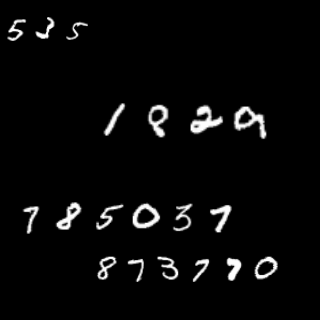 535
1829
785037
873770